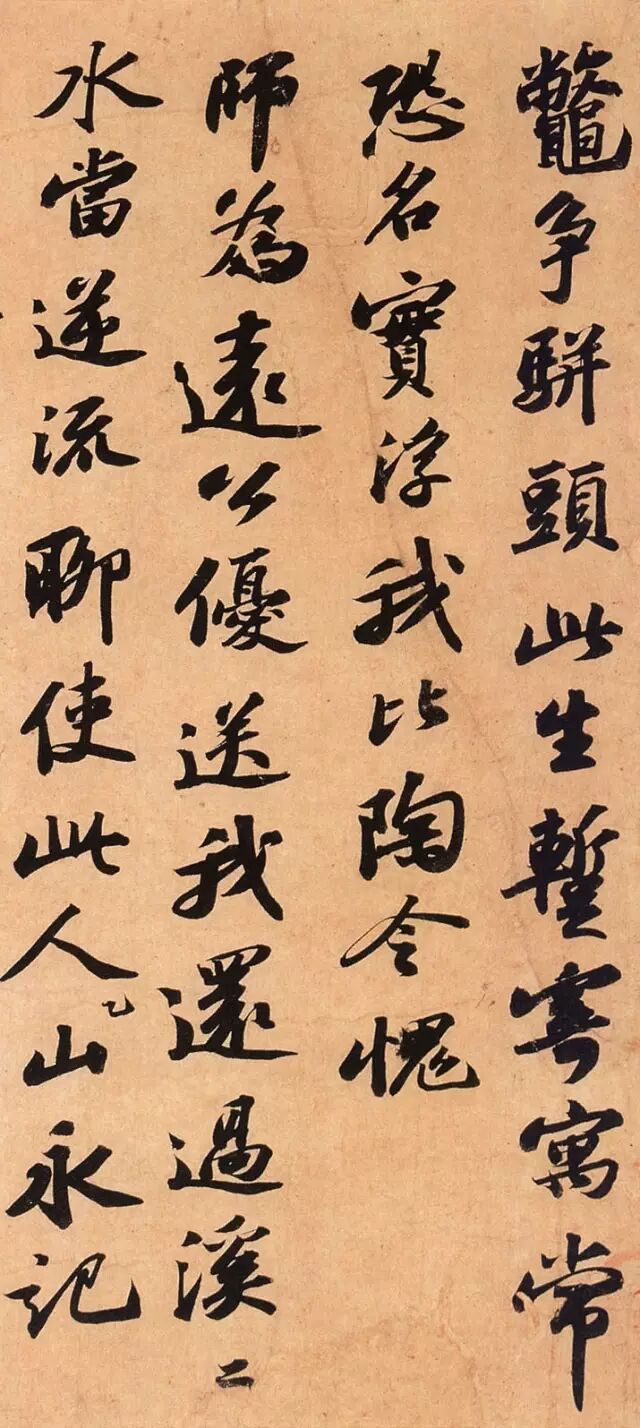 鼈争駢頭此生暫寄寓常
恐名實浮我比陶令愧
師為遠公優送我還過溪二
水當逆流聊使此人山永記